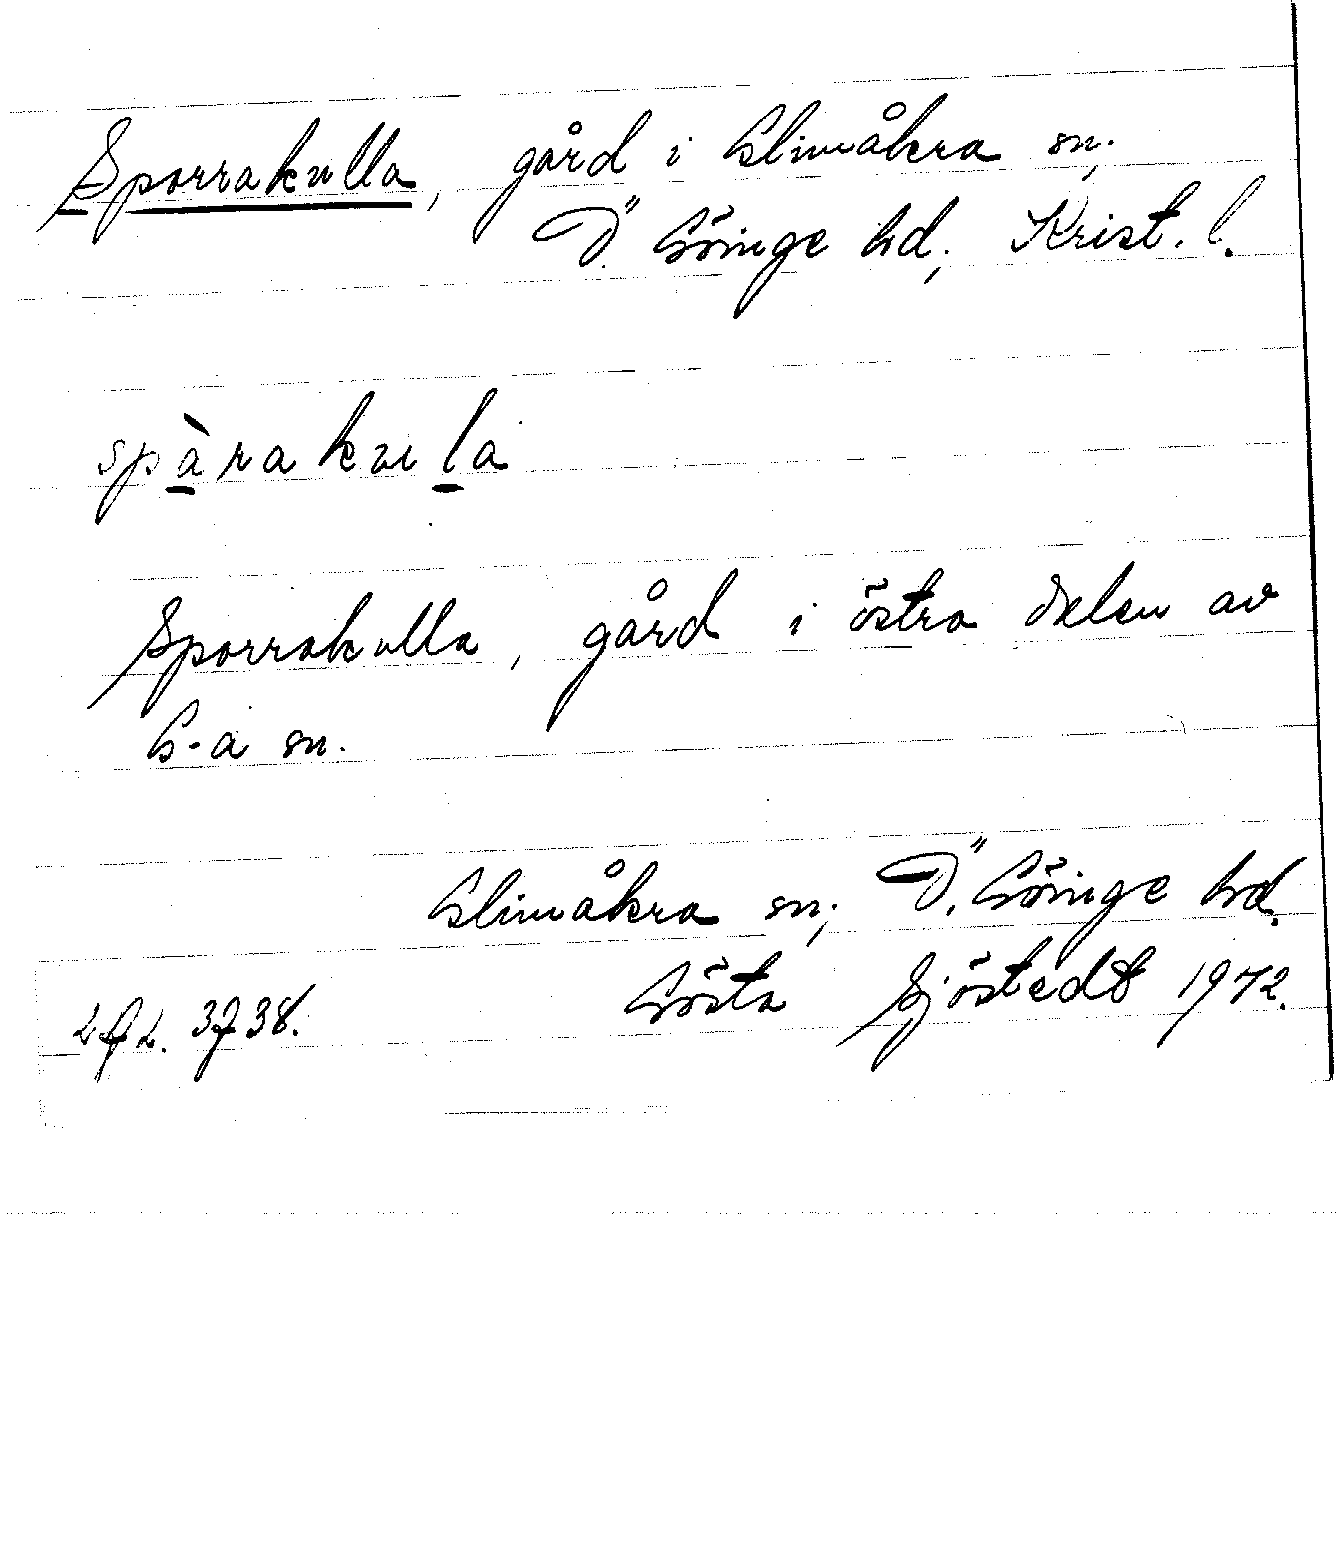 Sporrakulla, gård i Glimåkra sn;
Ö. Göinge hd; Krist. l.
spàrakula
Sporrakulla, gård i östra delen av
G-a sn.
Glimåkra sn; Ö. Göinge hd.
Gösta Sjöstedt 1972.